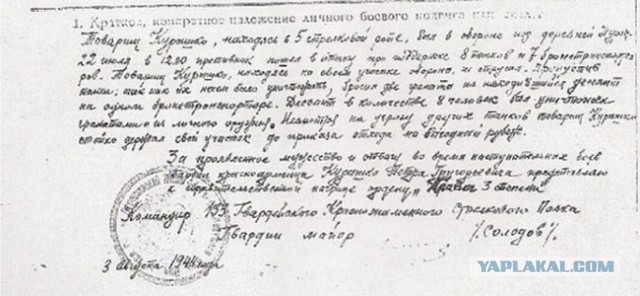 1. Краткое, конкретное изложение личного боевого подвига или заслуг
Товарищ Курашко, находясь в 5 стрелковой роте, был в обороне под деревней
22 июля в 12.00 противник пошел в атаку при поддержке 8 танков и 7 бронетранспорте-
ров. Товарищ Курашко, находясь на своем участке обороны, не струсил. Пропустив
танки, так как их нечем было уничтожить, бросил две гранаты на находившийся десант
на одном бронетранспортере. Десант в количестве 8 человек был уничтожен
гранатами и из личного оружия. Несмотря на угрозу других танков товарищ Курашко
стойко держал свой участок до приказа отхода на выгодный рубеж.
За проявленное мужество и отвагу во время наступательных боев
гвардии красноармейца Курашко Петра представляю
к правительственной награде ордену „Слава" 3 степени
Командир 153 Гвардейского Краснознаменного Стрелкового Полка
Гвардии майор /Солодов/.
3 августа 1944 года
YAPLAKAL.COM